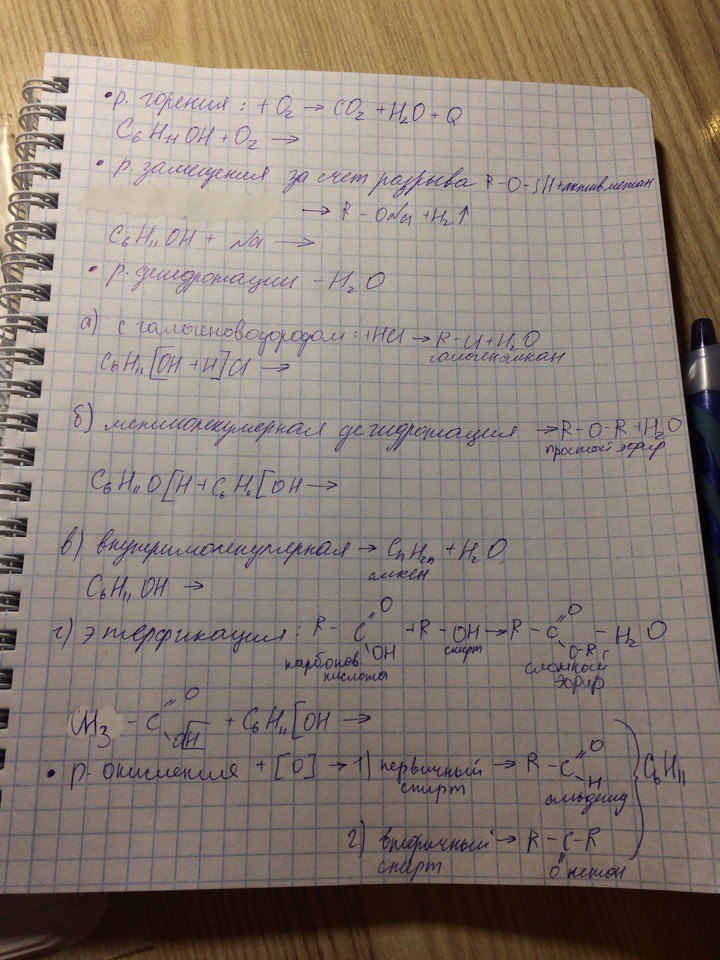 • р. горения : + O₂ → CO₂ + H₂O + Q
C₆H₁₁OH + O₂ →
• р. замещения за счет разрыва R-O-H + актив метал
→ R-ONa + H₂↑
C₆H₁₁OH + Na →
• р. дегидротации - H₂O
а) с галогеноводородом : + HCl → R-Cl + H₂O
галогеналкан
C₆H₁₁[OH + H]Cl →
б) межмолекулярная дегидротация → R-O-R + H₂O
простой эфир
C₆H₁₁O[H + C₆H₁₁[OH →
в) внутримолекулярная → CnH₂n + H₂O
алкен
C₆H₁₁OH →
г) этерфикация : R - C = O OH + R - OH → R - C = O O-R - H₂O
карбонов. кислота спирт сложный эфир
CH₃ - C = O OH + C₆H₁₁[OH →
• р. окисления + [O] → 1) первичный спирт → R - C = O H } C₆H₁₁
альдегид
2) вторичный спирт → R - C - R
= O кетон